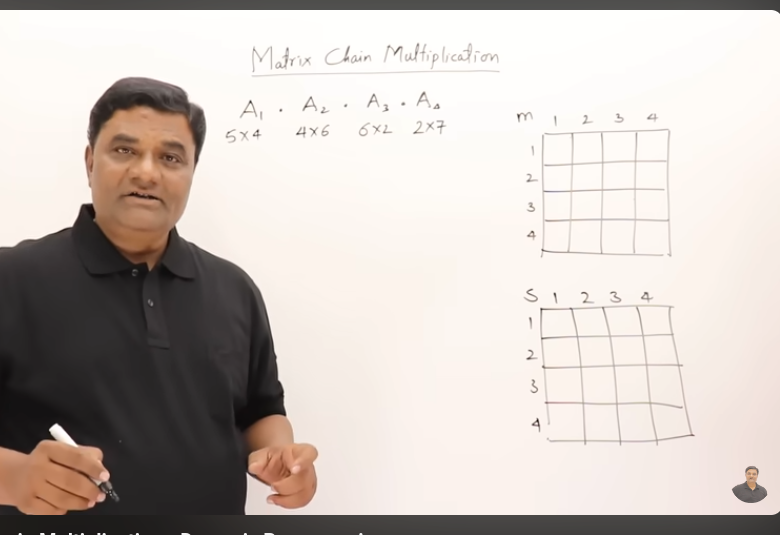 Matrix Chain Multiplication
A1 . A2 . A3 . A4
5×4 4×6 6×2 2×7
m 1 2 3 4
1
2
3
4
S 1 2 3 4
1
2
3
4